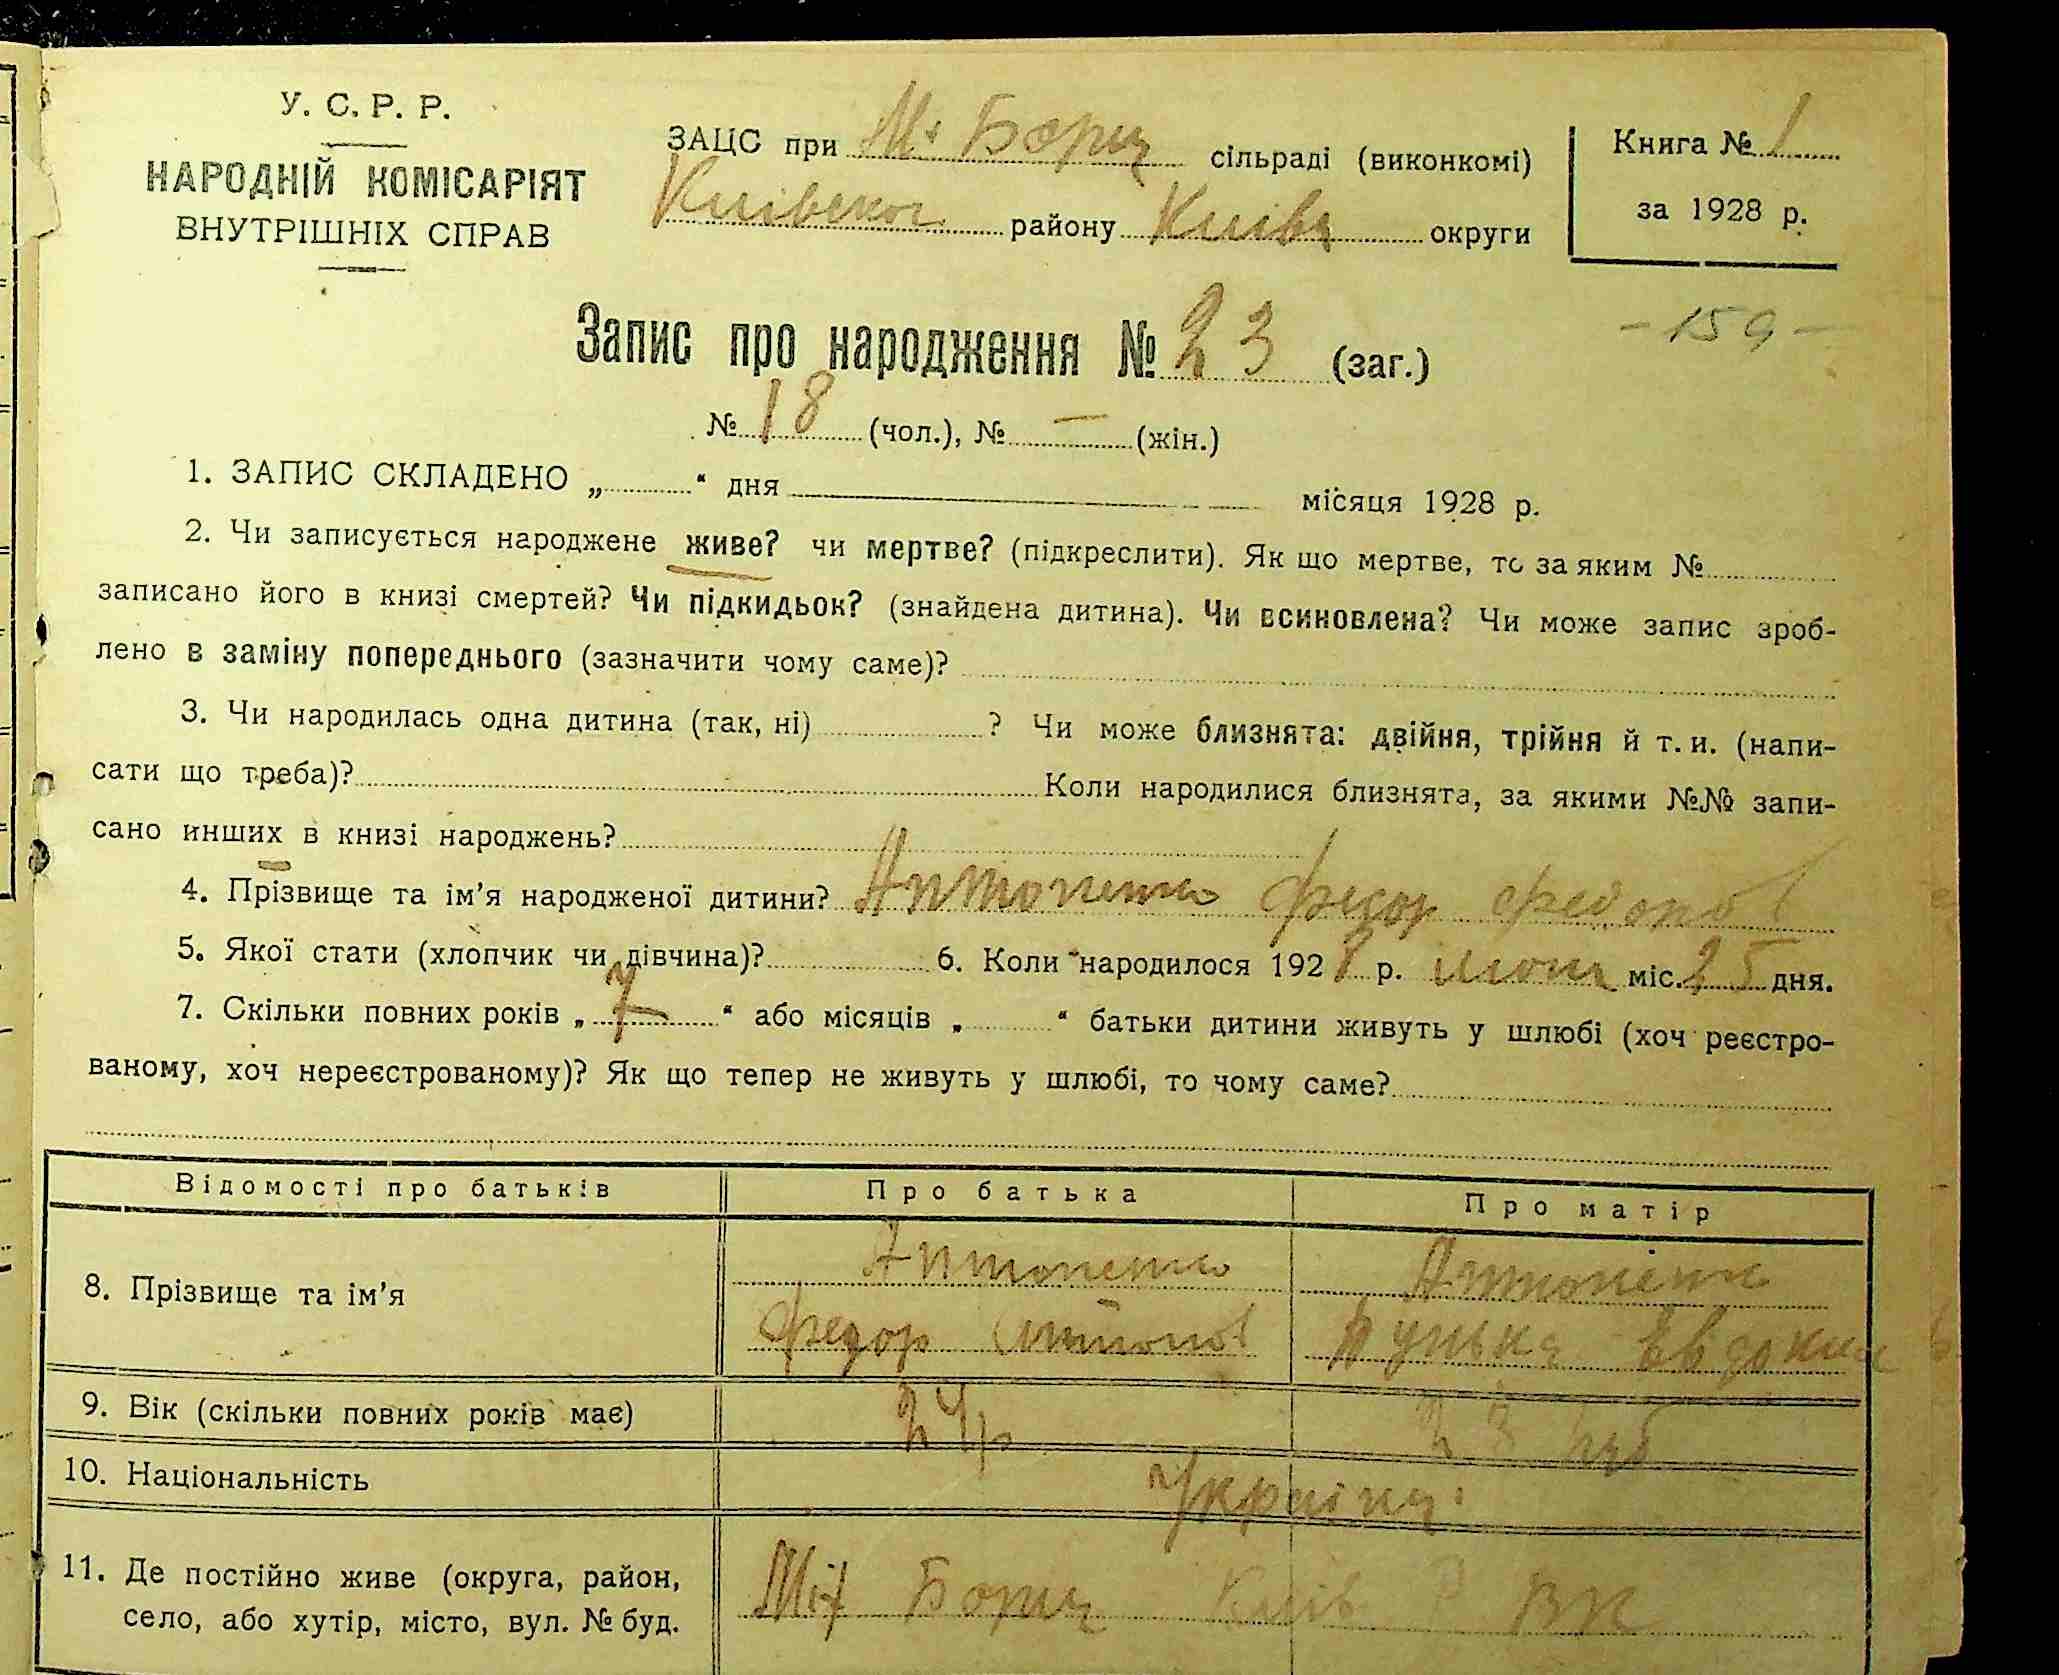 У. С. Р. Р.
НАРОДНІЙ КОМІСАРІЯТ
ВНУТРІШНІХ СПРАВ
ЗАЦС при М. Борщ сільраді (виконкомі)
Київськог району Київ округи
Книга № 1
за 1928 р.
Запис про народження № 23 (заг.)
- 159 -
№ 18 (чол.), № — (жін.)
1. ЗАПИС СКЛАДЕНО „ “ дня місяця 1928 р.
2. Чи записується народжене живе? чи мертве? (підкреслити). Як що мертве, то за яким №
записано його в книзі смертей? Чи підкидьок? (знайдена дитина). Чи всиновлена? Чи може запис зроб-
лено в заміну попереднього (зазначити чому саме)?
3. Чи народилась одна дитина (так, ні) ? Чи може близнята: двійня, трійня й т. и. (напи-
сати що треба)? Коли народилися близнята, за якими №№ запи-
сано инших в книзі народжень?
4. Прізвище та ім’я народженої дитини? Антоненко Федор Федоров
5. Якої стати (хлопчик чи дівчина)? 6. Коли народилося 1928 р. міс. 25 дня.
7. Скільки повних років „ 7 “ або місяців „ “ батьки дитини живуть у шлюбі (хоч реєстро-
ваному, хоч нереєстрованому)? Як що тепер не живуть у шлюбі, то чому саме?
Відомості про батьків Про батька Про матір
8. Прізвище та ім’я
Антоненко Антоненко
Федор Евдоким
9. Вік (скільки повних років має) 24 р 23
10. Національність Українц
11. Де постійно живе (округа, район,
село, або хутір, місто, вул. № буд.
Мих Борщ Київ Р ВК